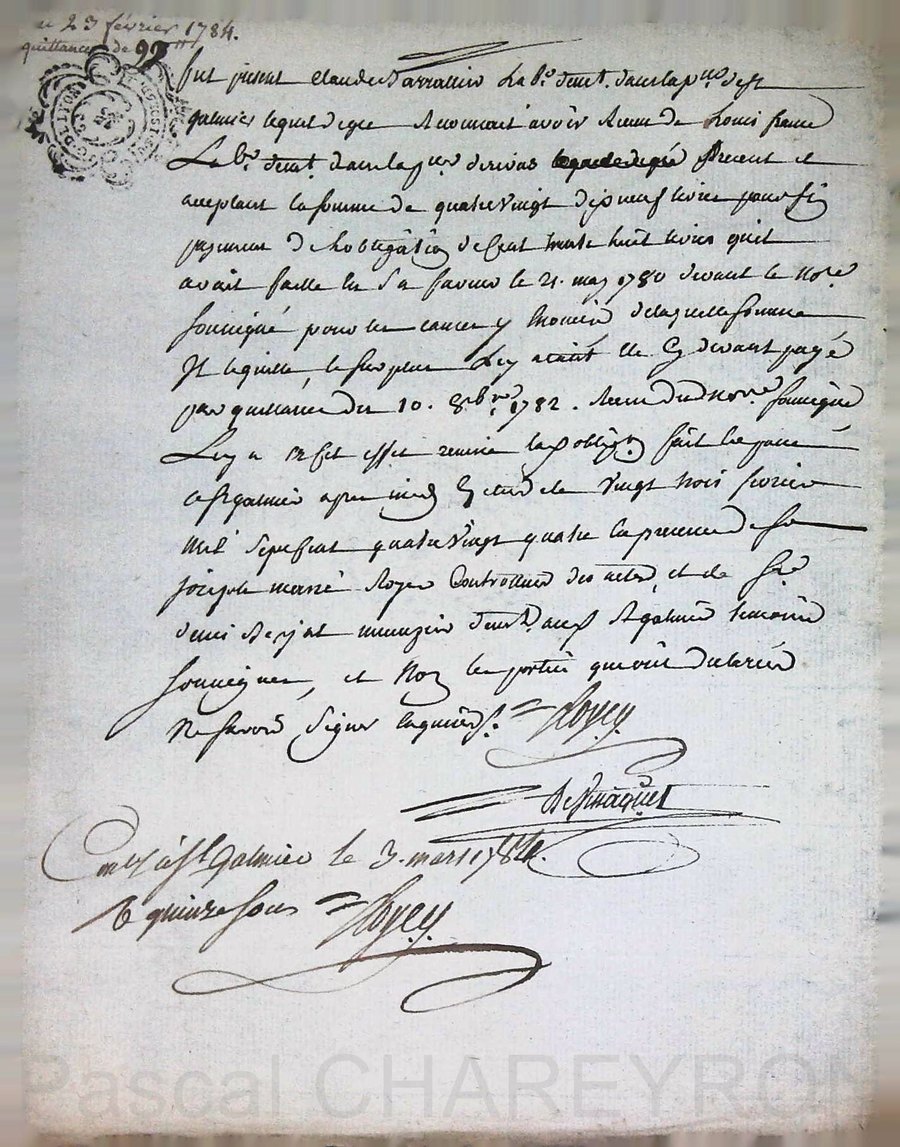 du 23 février 1784.
quittance de 99 ₶
fut présent Claude Lab.r demt. dans la p.sse de St
galmier lequel de gré a reconnu avoir receu de Louis
Lab.r demt. dans la p.sse de rivas présent et
acceptant la somme de quatre vingt dix neuf livres pour fin
payement de l'obligation de cent trente huit livres qu'il
avait passée en sa faveur le 21. may 1780 devant le No.re
soussigné pour les causes y énoncées de laquelle somme
Il le quitte, le surplus luy ayant été cy devant payé
par quittance du 10. 8bre 1782. receue dud. No.re soussigné
Luy a à cet effet remise lad. obligon. fait et passé
à St galmier après midy ce jourd'huy vingt trois février
mil sept cent quatre vingt quatre en présence de Sr
joseph marie Royer Controlleur des actes, et de Sr
demt. aud. St galmier témoins
soussignés, et Non les parties qui ont déclaré
ne savoir signer enquis. Royer

Cont.lé à St. galmier le 3. mars 1784.
R quinze sous Royer
Pascal CHAREYRON